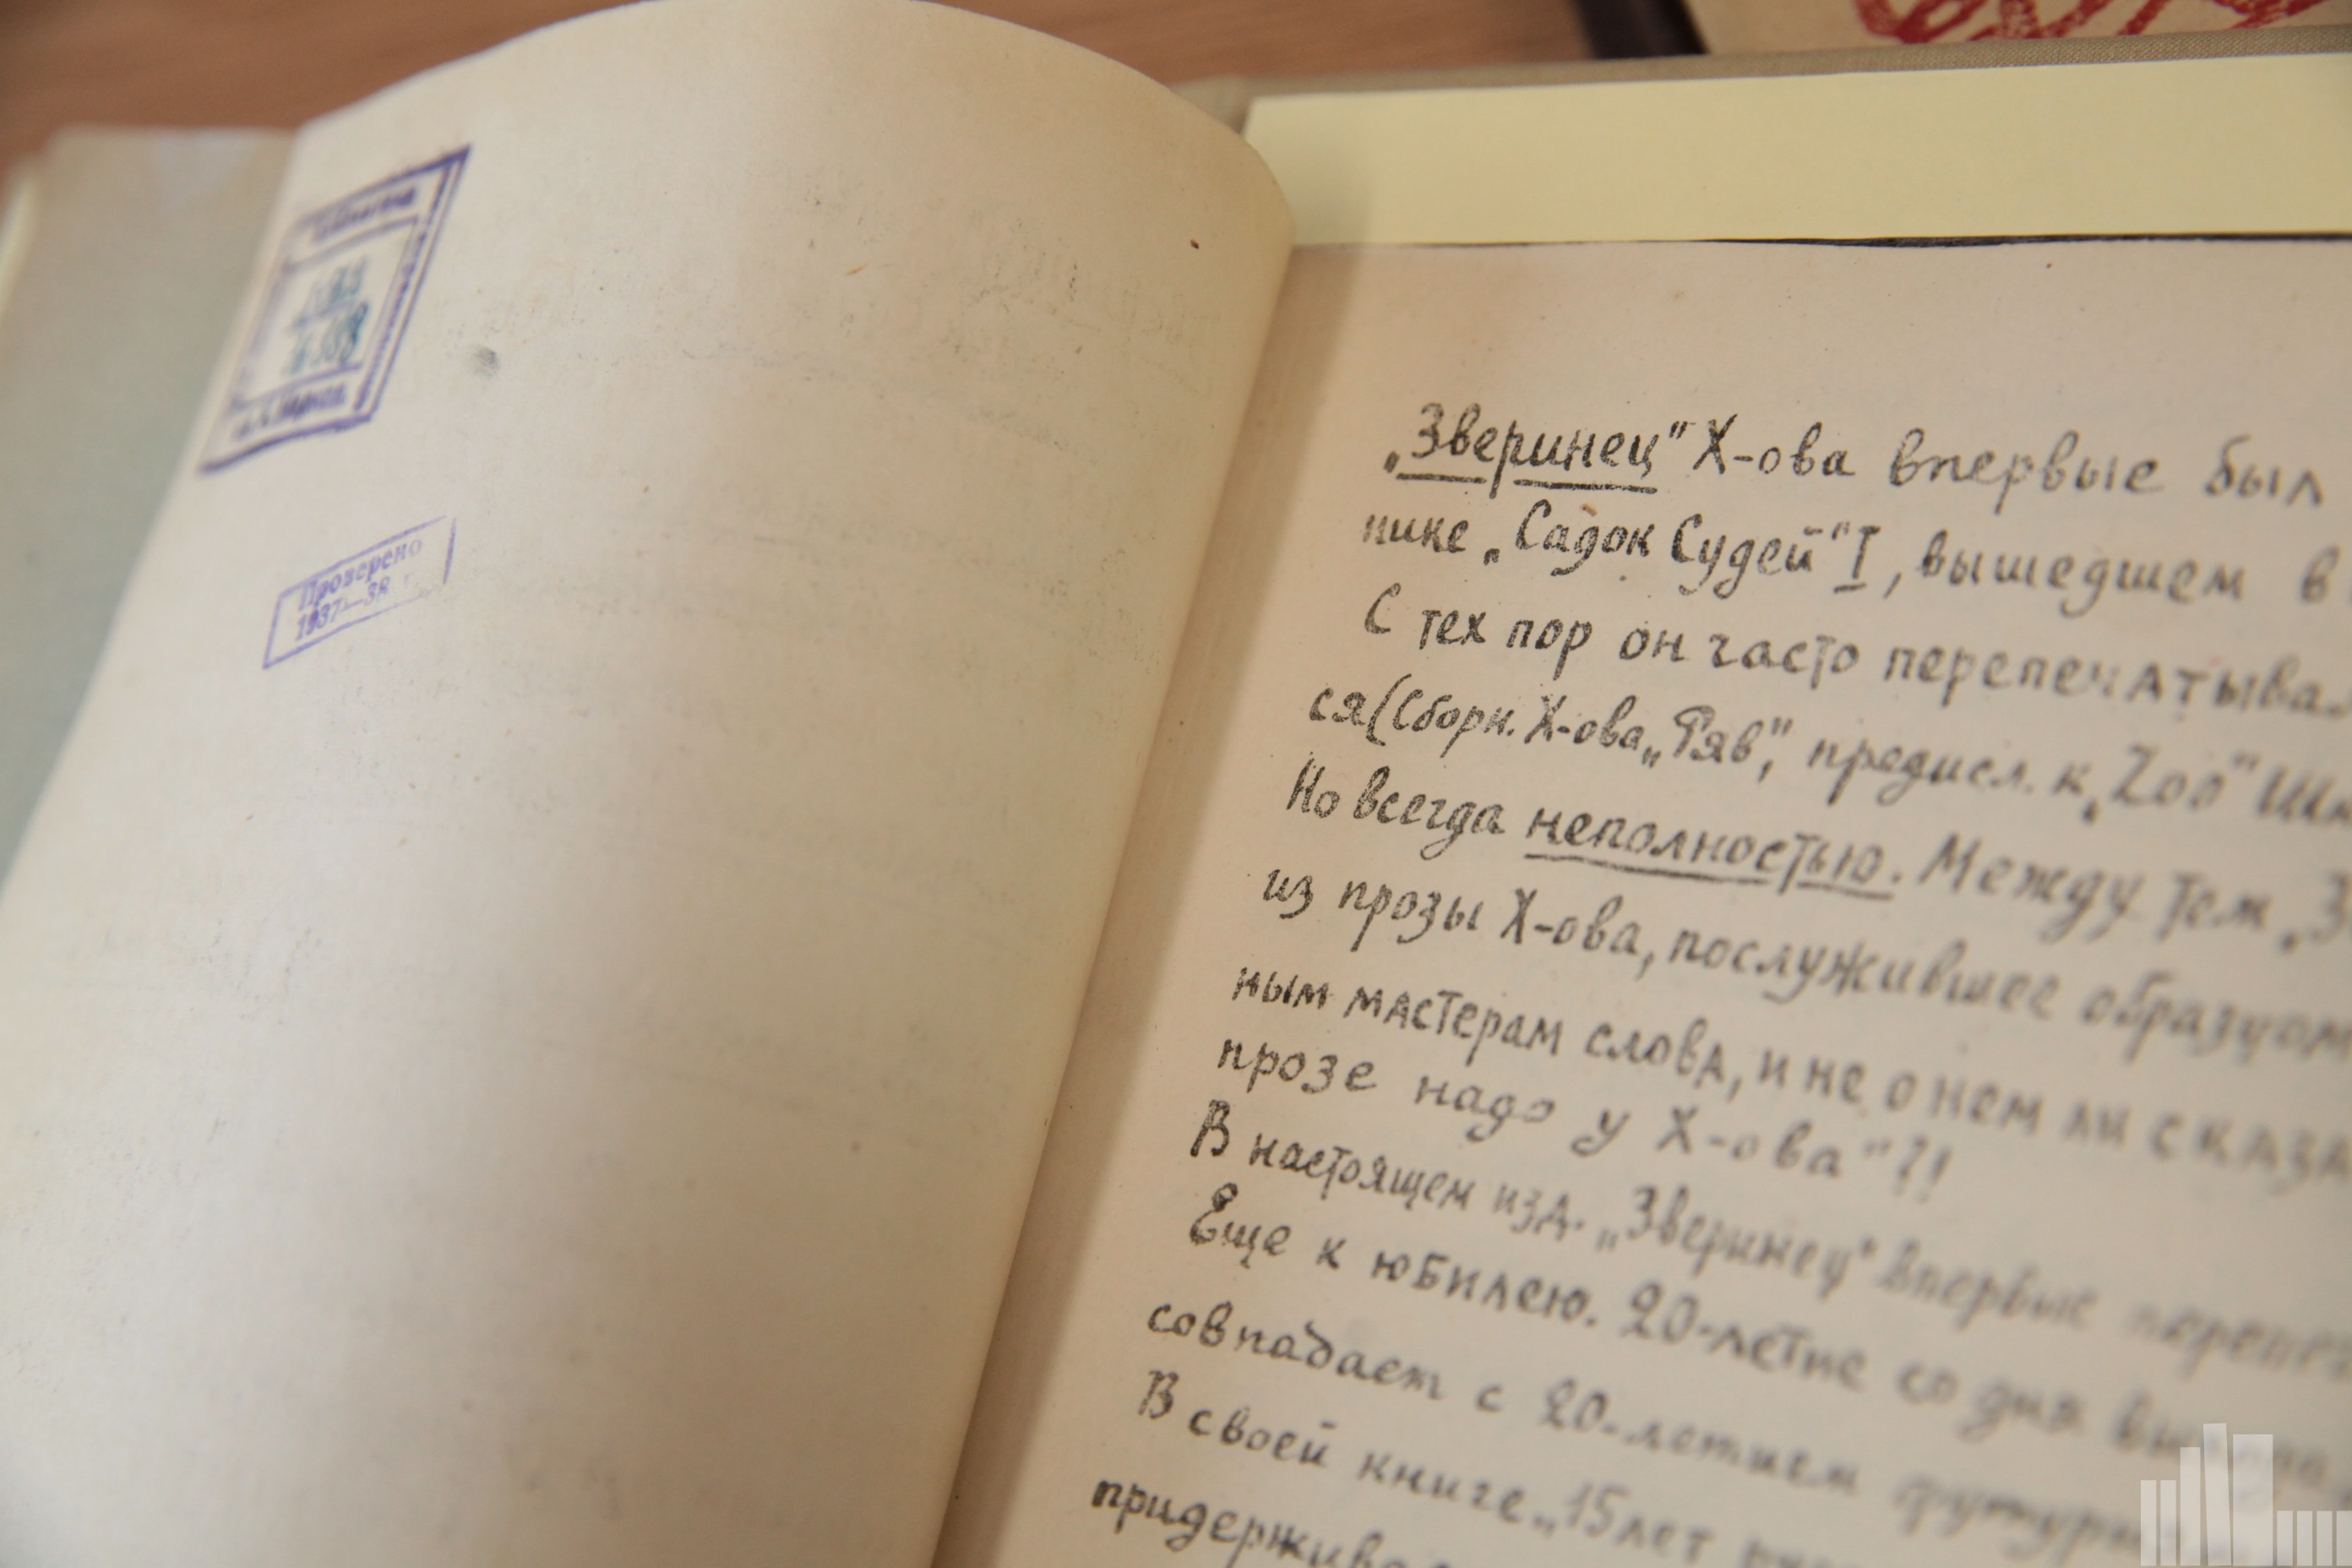 Проверено
1937—38 г.
„Зверинец" Х-ова впервые был
нике „Садок Судей" I, вышедшем в
С тех пор он часто перепечатывал
ся (Сборн. Х-ова „Ряв", предисл. к „Zoo" Шк
Но всегда неполностью. Между тем „З
из прозы Х-ова, послужившее образцом
ным мастерам слова, и не о нем ли сказа
прозе надо у Х-ова"?!
В настоящем изд. „Зверинец" впервые перепеч
Еще к юбилею. 20-летие со дня
совпадает с 20-летием футури
В своей книге „15 лет
придержива